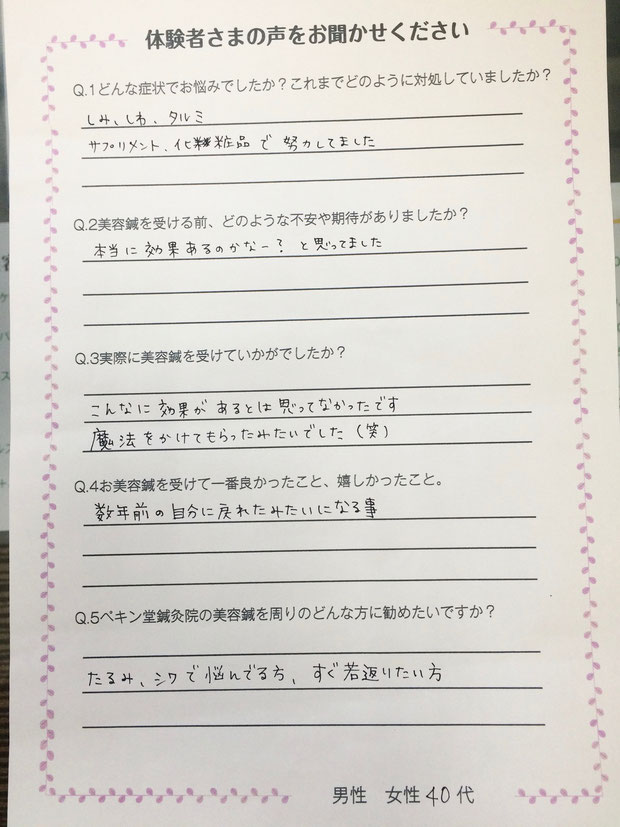 体験者さまの声をお聞かせください
Q.1どんな症状でお悩みでしたか？これまでどのように対処していましたか？
しみ、しわ、タルミ
サプリメント、化粧品で 努力してました
Q.2美容鍼を受ける前、どのような不安や期待がありましたか？
本当に効果あるのかなー？と思ってました
Q.3実際に美容鍼を受けていかがでしたか？
こんなに効果が あるとは思ってなかったです
魔法をかけてもらったみたいでした（笑）
Q.4お美容鍼を受けて一番良かったこと、嬉しかったこと。
数年前の自分に戻れたみたいになる事
Q.5ペキン堂鍼灸院の美容鍼を周りのどんな方に勧めたいですか？
たるみ、シワで悩んでる方、すぐ若返りたい方
男性 女性 40代